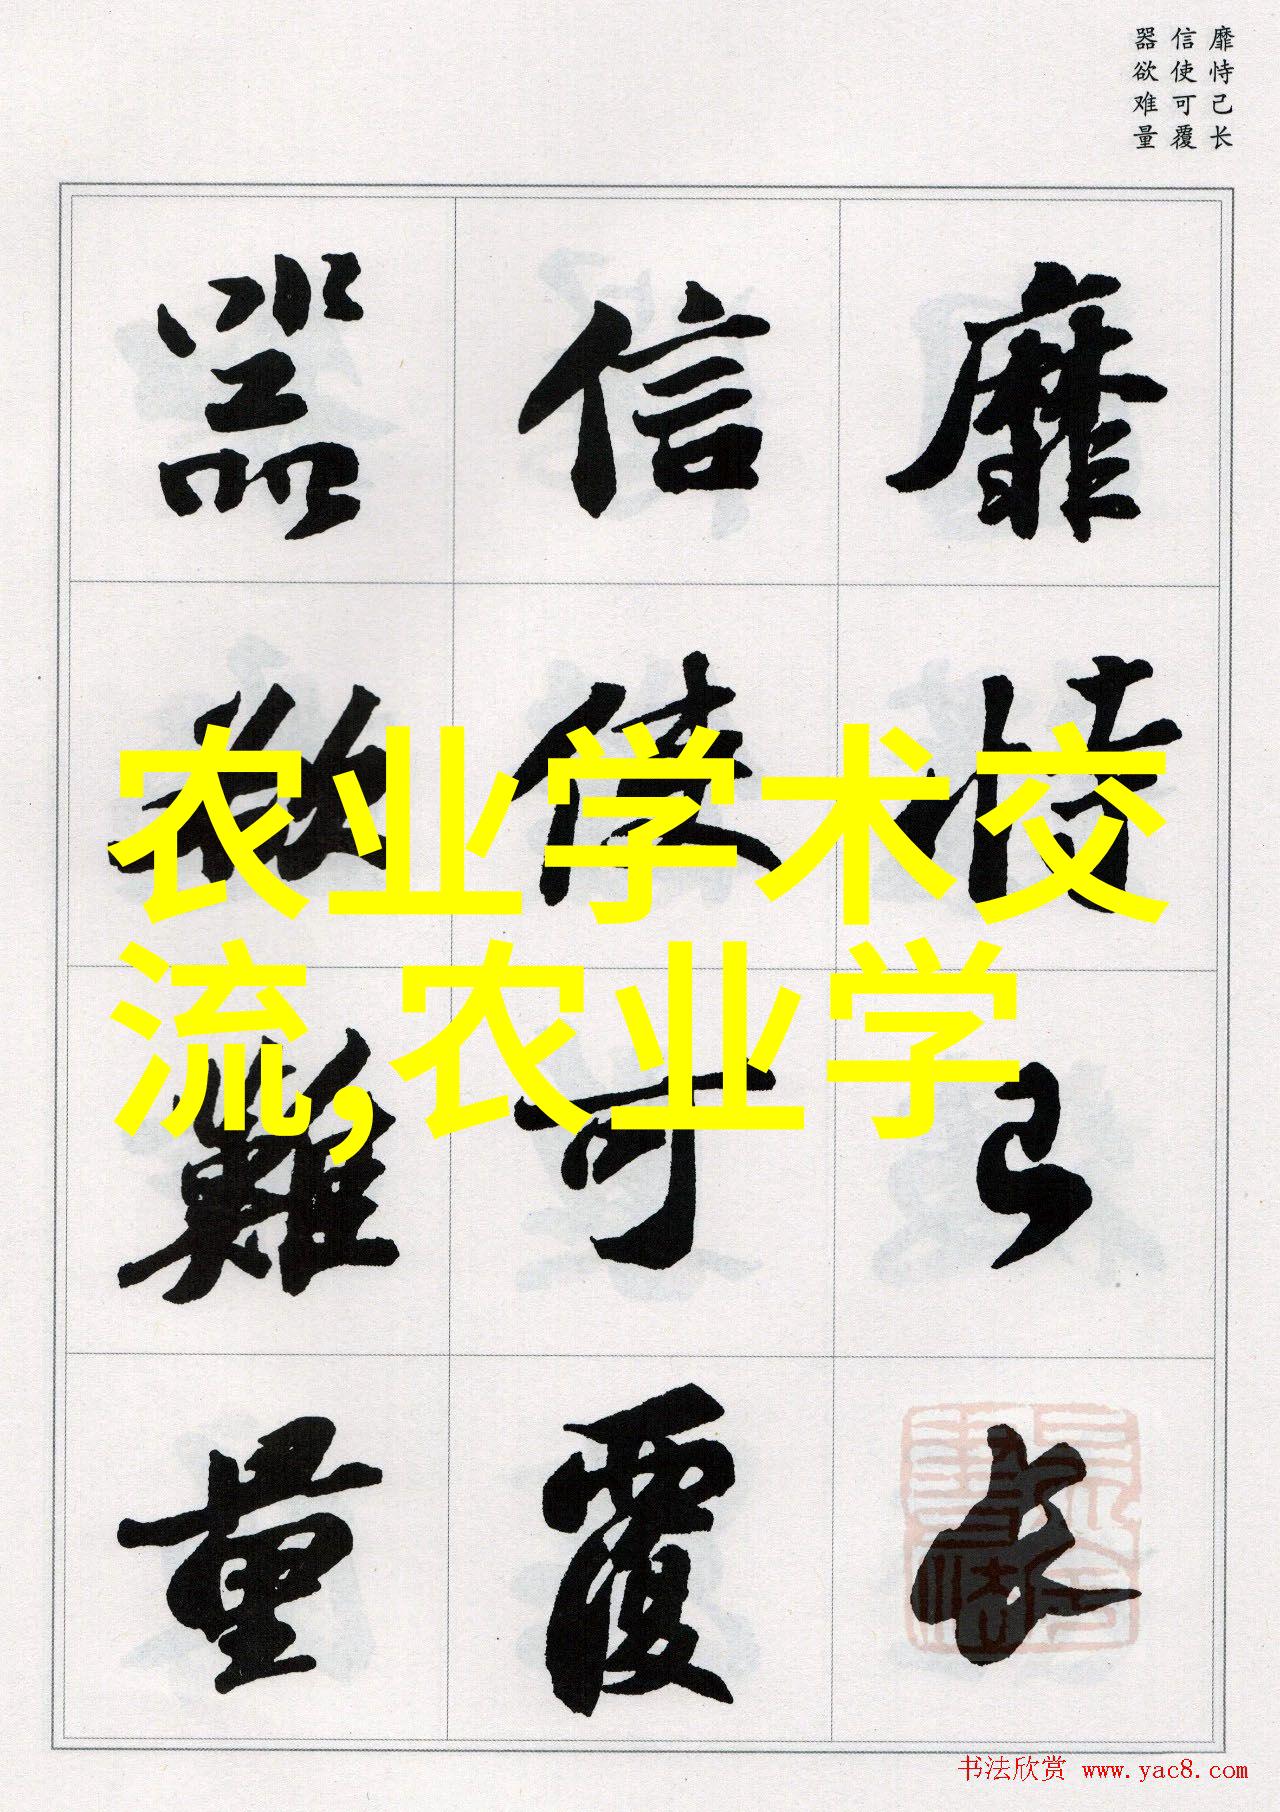 靡恃己长
信使可覆
器欲难量
靡恃己長
信使可覆
器欲難量
农业学术交
流,农业学
书法欣赏 www.yac8.com